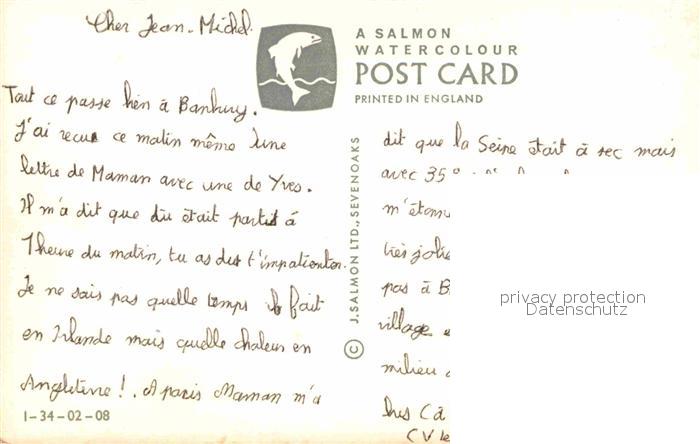 Cher Jean-Michel.
A SALMON
WATERCOLOUR
POST CARD
PRINTED IN ENGLAND
Tout ce passe bien à Banbury.
J'ai recue ce matin même une
lettre de Maman avec une de Yves.
Il m'a dit que tu était partit à
1 heure du matin, tu as dut t'impatienter.
Je ne sais pas quelle temps il fait
en Irlande mais quelle chaleur en
Angleterre !. A paris Maman m'a
1-34-02-08
© J. SALMON LTD., SEVENOAKS
dit que la Seine était à sec mais
avec 35°
m'étonn
très jolie
pas à B
village
milieu
CV
privacy protection
Datenschutz